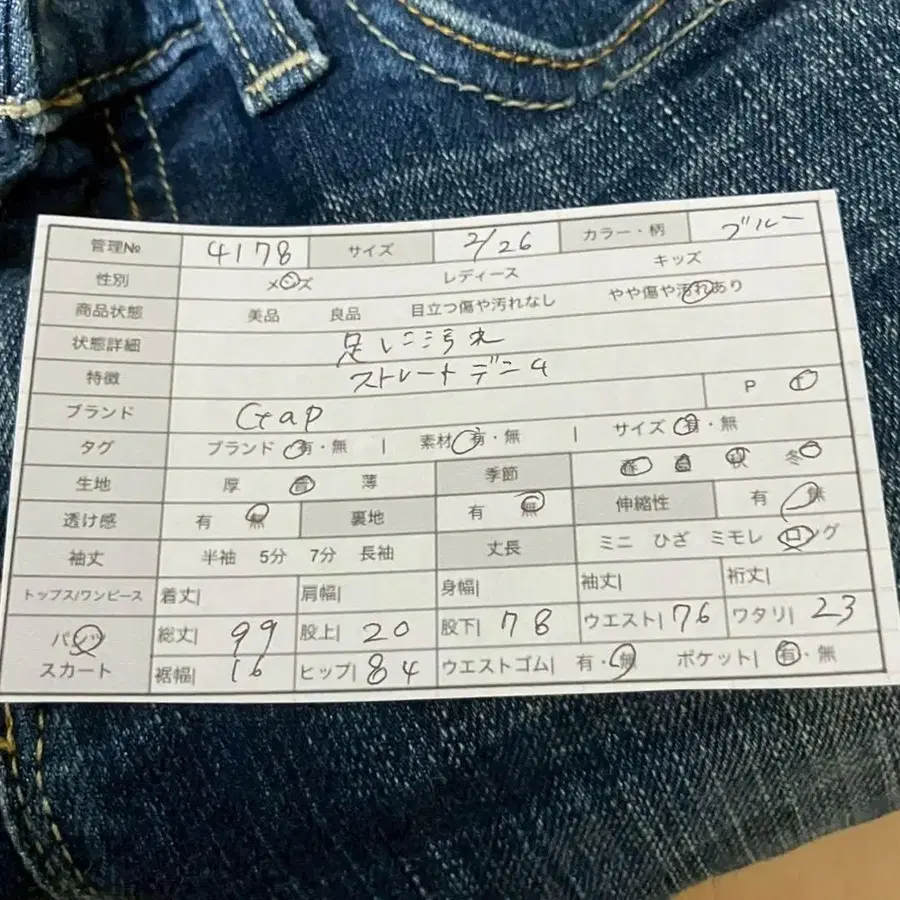 管理№ 4178 サイズ 2/26 カラー・柄 ブルー
性別 メンズ レディース キッズ
商品状態 美品 良品 目立つ傷や汚れなし やや傷や汚れあり
状態詳細 足レニ汚れ
特徴 ストレートデニム
ブランド Gap P
タグ ブランド 有・無 | 素材 有・無 | サイズ 有・無
生地 厚 普 薄 季節 春 夏 秋 冬
透け感 有 無 裏地 有 無 伸縮性 有 無
袖丈 半袖 5分 7分 長袖 丈長 ミニ ひざ ミモレ ロング
トップス/ワンピース 着丈| 肩幅| 身幅| 袖丈| 裄丈|
パンツ 総丈| 99 股上| 20 股下| 78 ウエスト| 76 ワタリ| 23
スカート 裾幅| 16 ヒップ| 84 ウエストゴム| 有・無 ポケット| 有・無